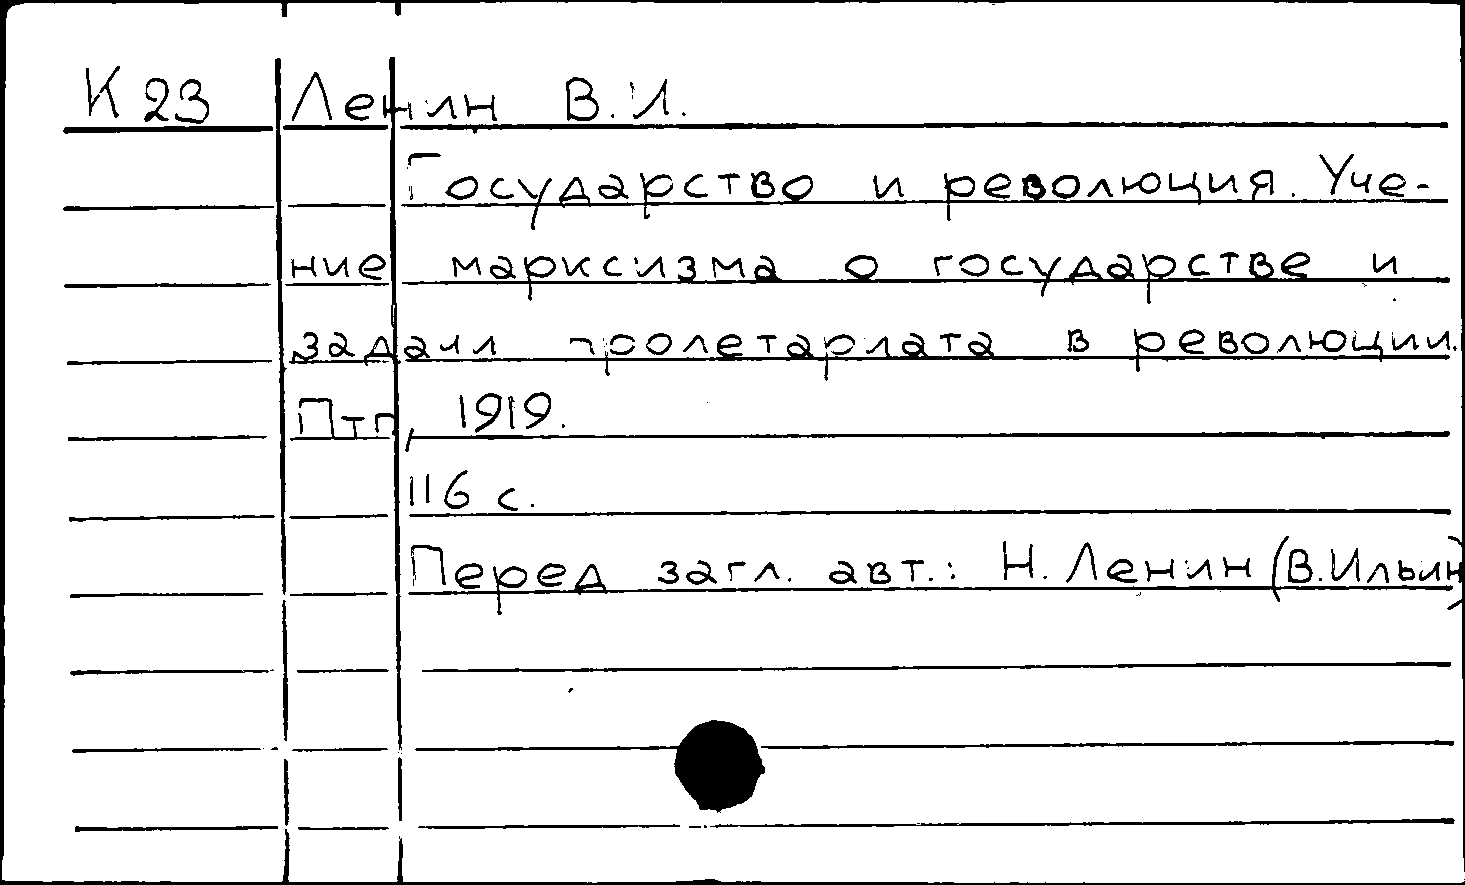 К 23 Ленин В.И.
Государство и революция. Уче-
ние марксизма о государстве и
задачи пролетариата в революции.
Птг, 1919.
116 с.
Перед загл. авт.: Н. Ленин (В. Ильин)